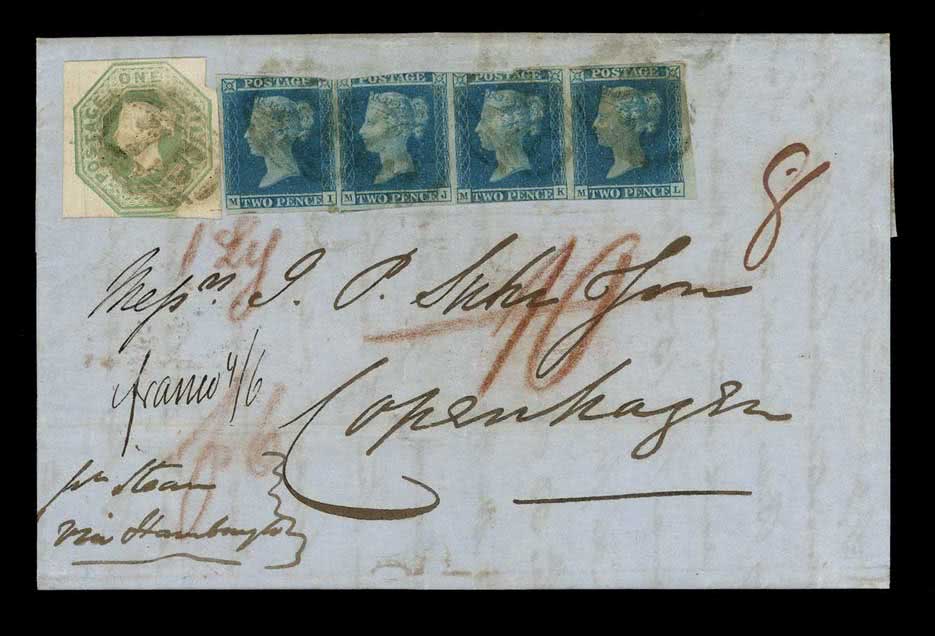 POSTAGE ONE
POSTAGE POSTAGE POSTAGE POSTAGE
M TWO PENCE I M TWO PENCE J M TWO PENCE K M TWO PENCE L
8
Messrs J. P. Suhr & Son
franco 4/6
Copenhagen
pr Steam
via Hamburgh